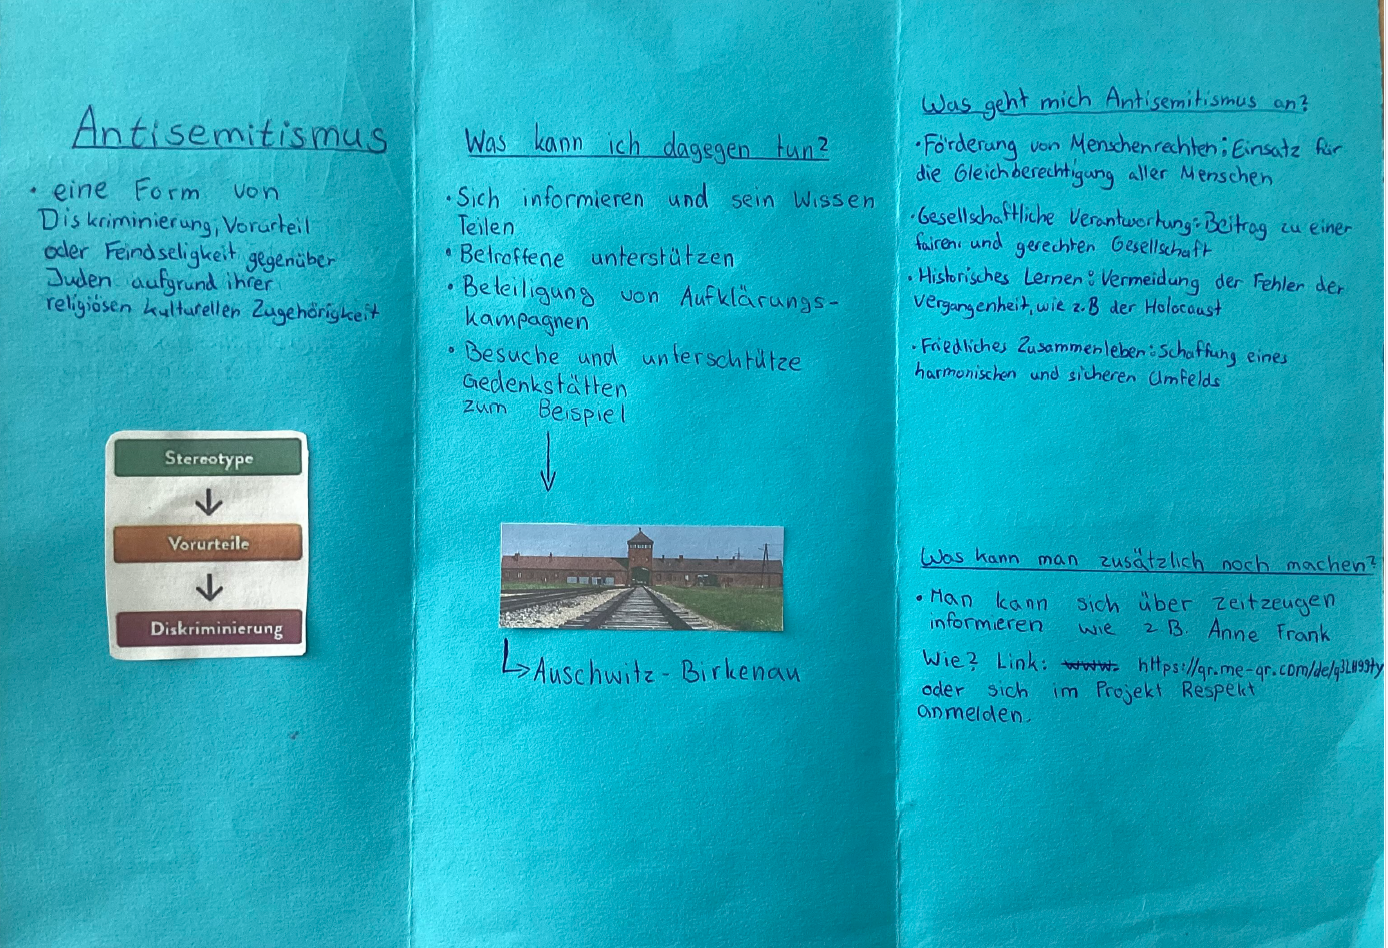 Antisemitismus
• eine Form von
Diskriminierung, Vorurteil
oder Feindseligkeit gegenüber
Juden aufgrund ihrer
religiösen kulturellen Zugehörigkeit
Stereotype
Vorurteile
Diskriminierung
Was kann ich dagegen tun?
• Sich informieren und sein Wissen
Teilen
• Betroffene unterstützen
• Beteiligung von Aufklärungs-
kampagnen
• Besuche und unterschtütze
Gedenkstätten
zum Beispiel
Auschwitz-Birkenau
Was geht mich Antisemitismus an?
• Förderung von Menschenrechten: Einsatz für
die Gleichberechtigung aller Menschen
• Gesellschaftliche Verantwortung: Beitrag zu einer
fairen und gerechten Gesellschaft
• Historisches Lernen: Vermeidung der Fehler der
Vergangenheit, wie z.B der Holocaust
• Friedliches Zusammenleben: Schaffung eines
harmonischen und sicheren Umfelds
Was kann man zusätzlich noch machen?
• Man kann sich über Zeitzeugen
informieren wie z B. Anne Frank
Wie? Link: https://qr.me-qr.com/de/
oder sich im Projekt Respekt
anmelden.